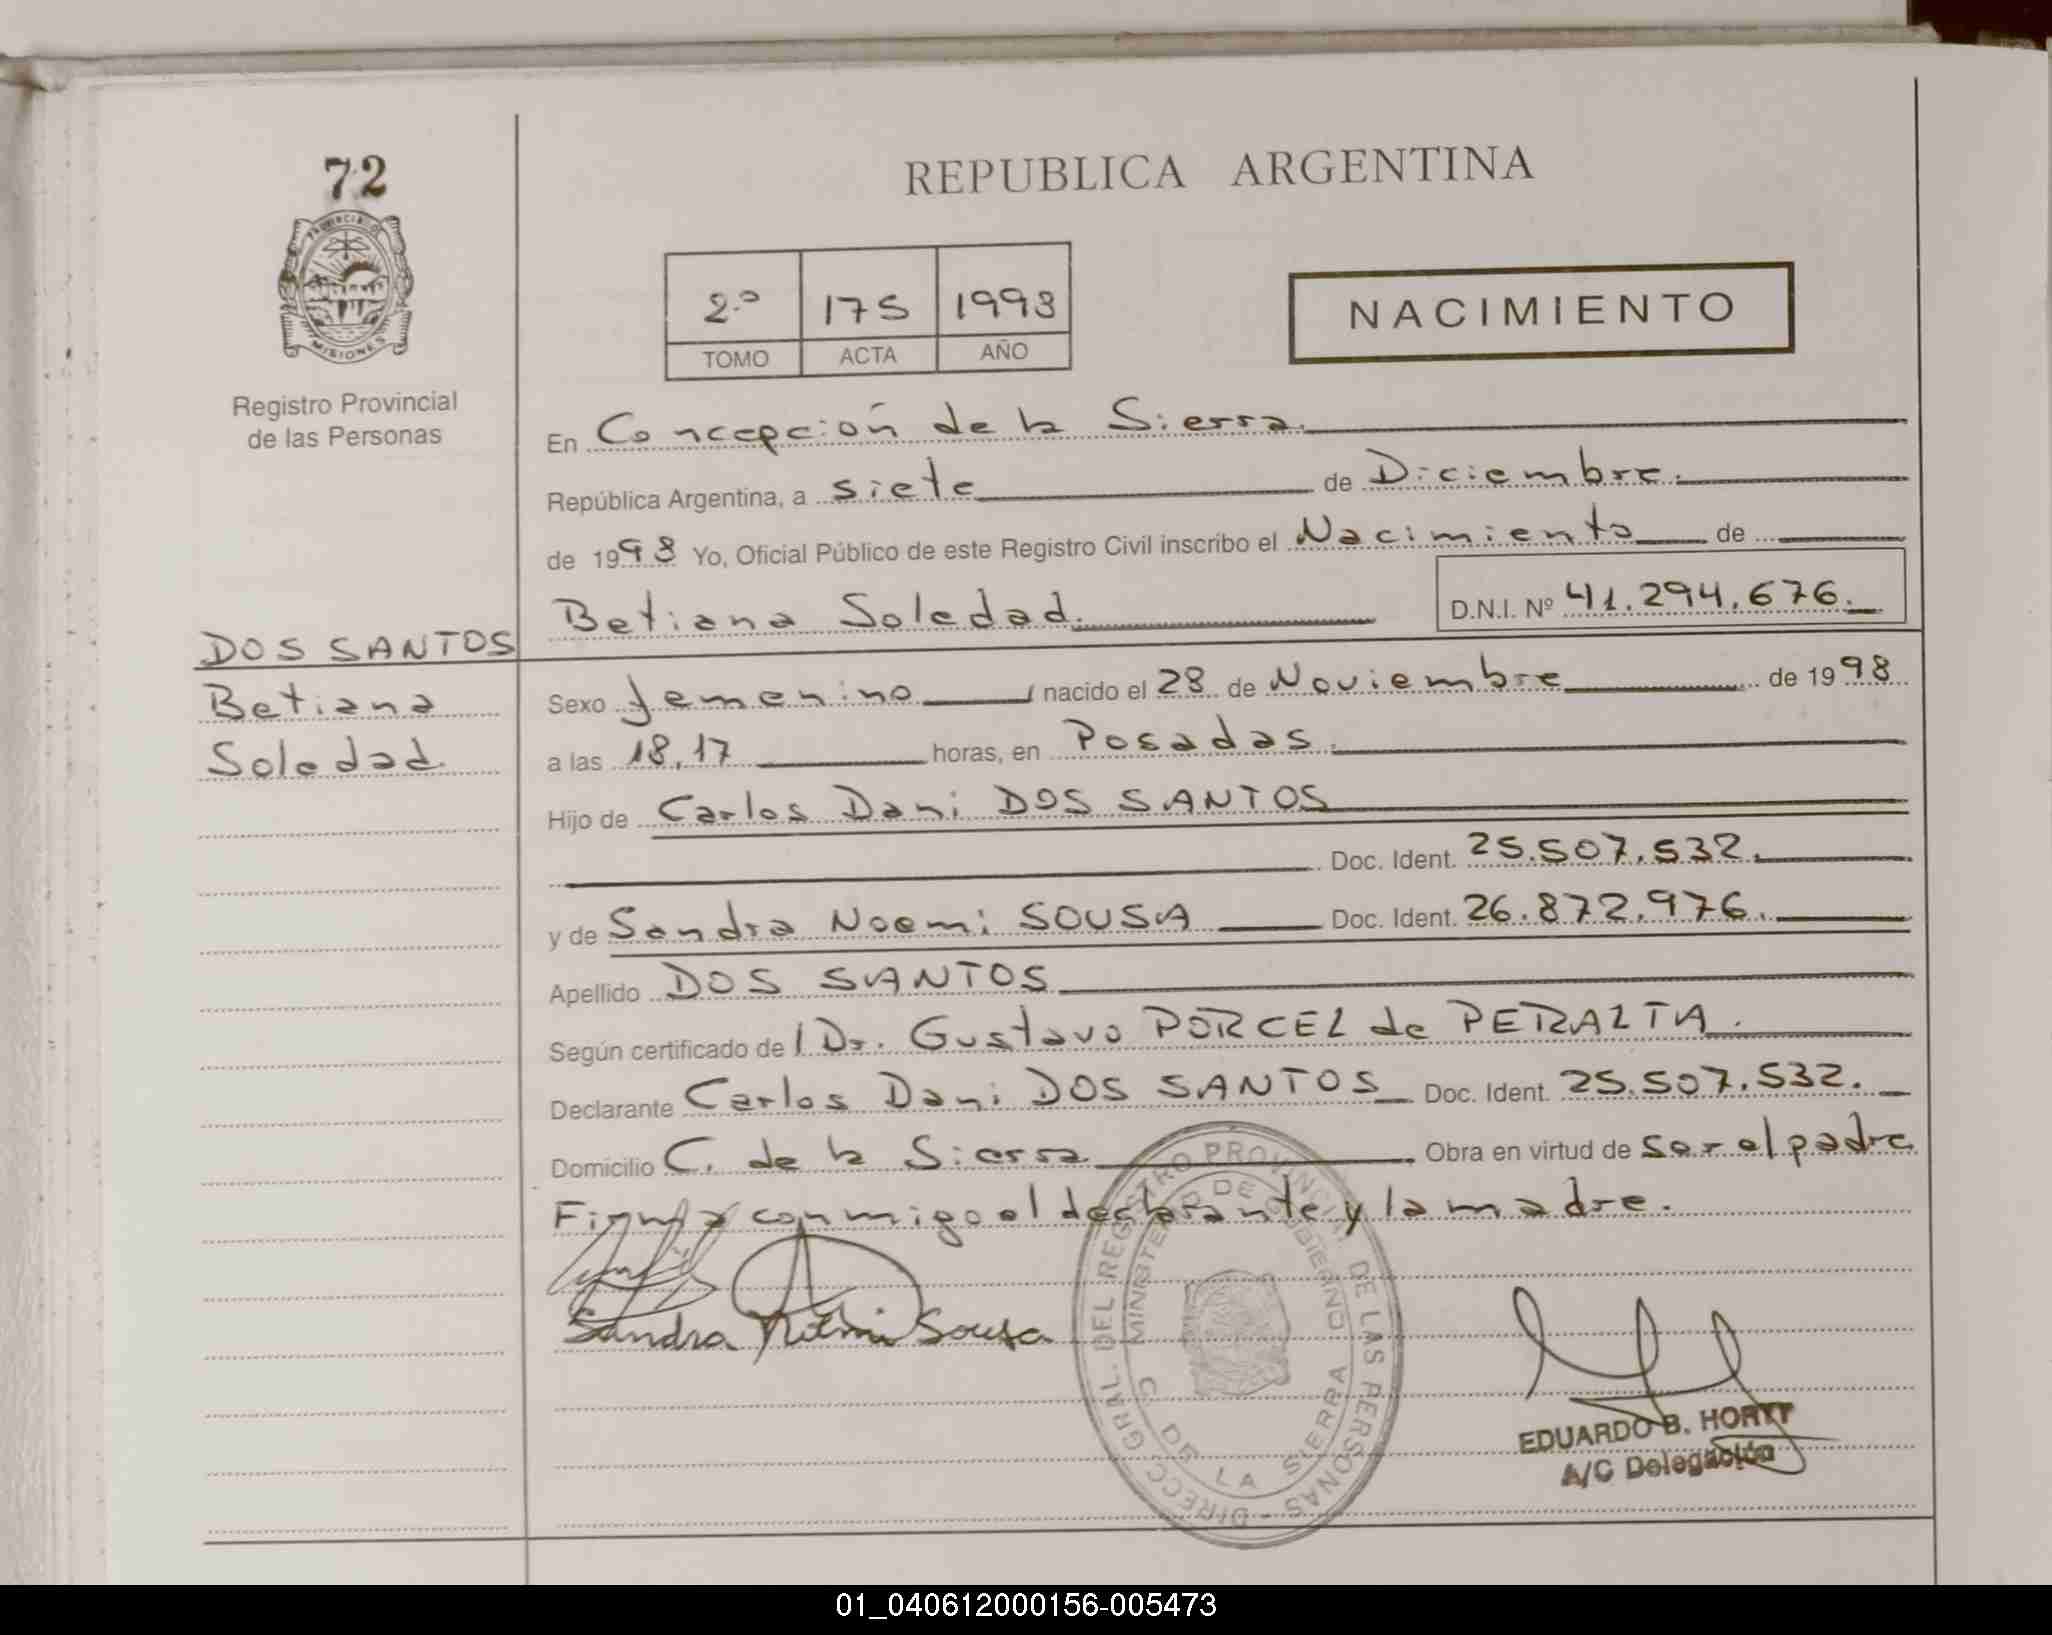 72
PROVINCIA D
MISIONES
Registro Provincial
de las Personas
REPUBLICA ARGENTINA
2.º 175 1998
TOMO ACTA AÑO
NACIMIENTO
En Concepción de la Sierra.
República Argentina, a siete de Diciembre.
de 1998 Yo, Oficial Público de este Registro Civil inscribo el Nacimiento de
Betiana Soledad. D.N.I. Nº 41.294.676.
DOS SANTOS
Betiana
Soledad.
Sexo femenino nacido el 28 de Noviembre de 1998
a las 18,17 horas, en Posadas.
Hijo de Carlos Dani DOS SANTOS
Doc. Ident. 25.507.532.
y de Sandra Noemi SOUSA Doc. Ident. 26.872.976.
Apellido DOS SANTOS
Según certificado de / Dr. Gustavo PORCEL de PERALTA.
Declarante Carlos Dani DOS SANTOS Doc. Ident. 25.507.532.
Domicilio C. de la Sierra Obra en virtud de ser el padre
Firma conmigo el declarante y la madre.
Sandra Noemi Sousa
DIRECC GRAL. DEL REGISTRO PROVINCIAL DE LAS PERSONAS -
MINISTERIO DE GOBIERNO
C DE LA SIERRA
EDUARDO B. HORTT
A/C Delegación
01_040612000156-005473